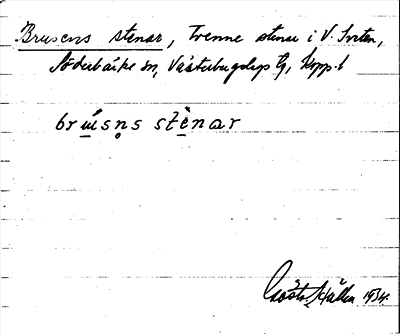 Brusens stenar, Trenne stenar i V. Svten,
Söderbärke sn, Västerbergslags tg, Kopp. l
brusn̥s stènar
Gösta 1934.